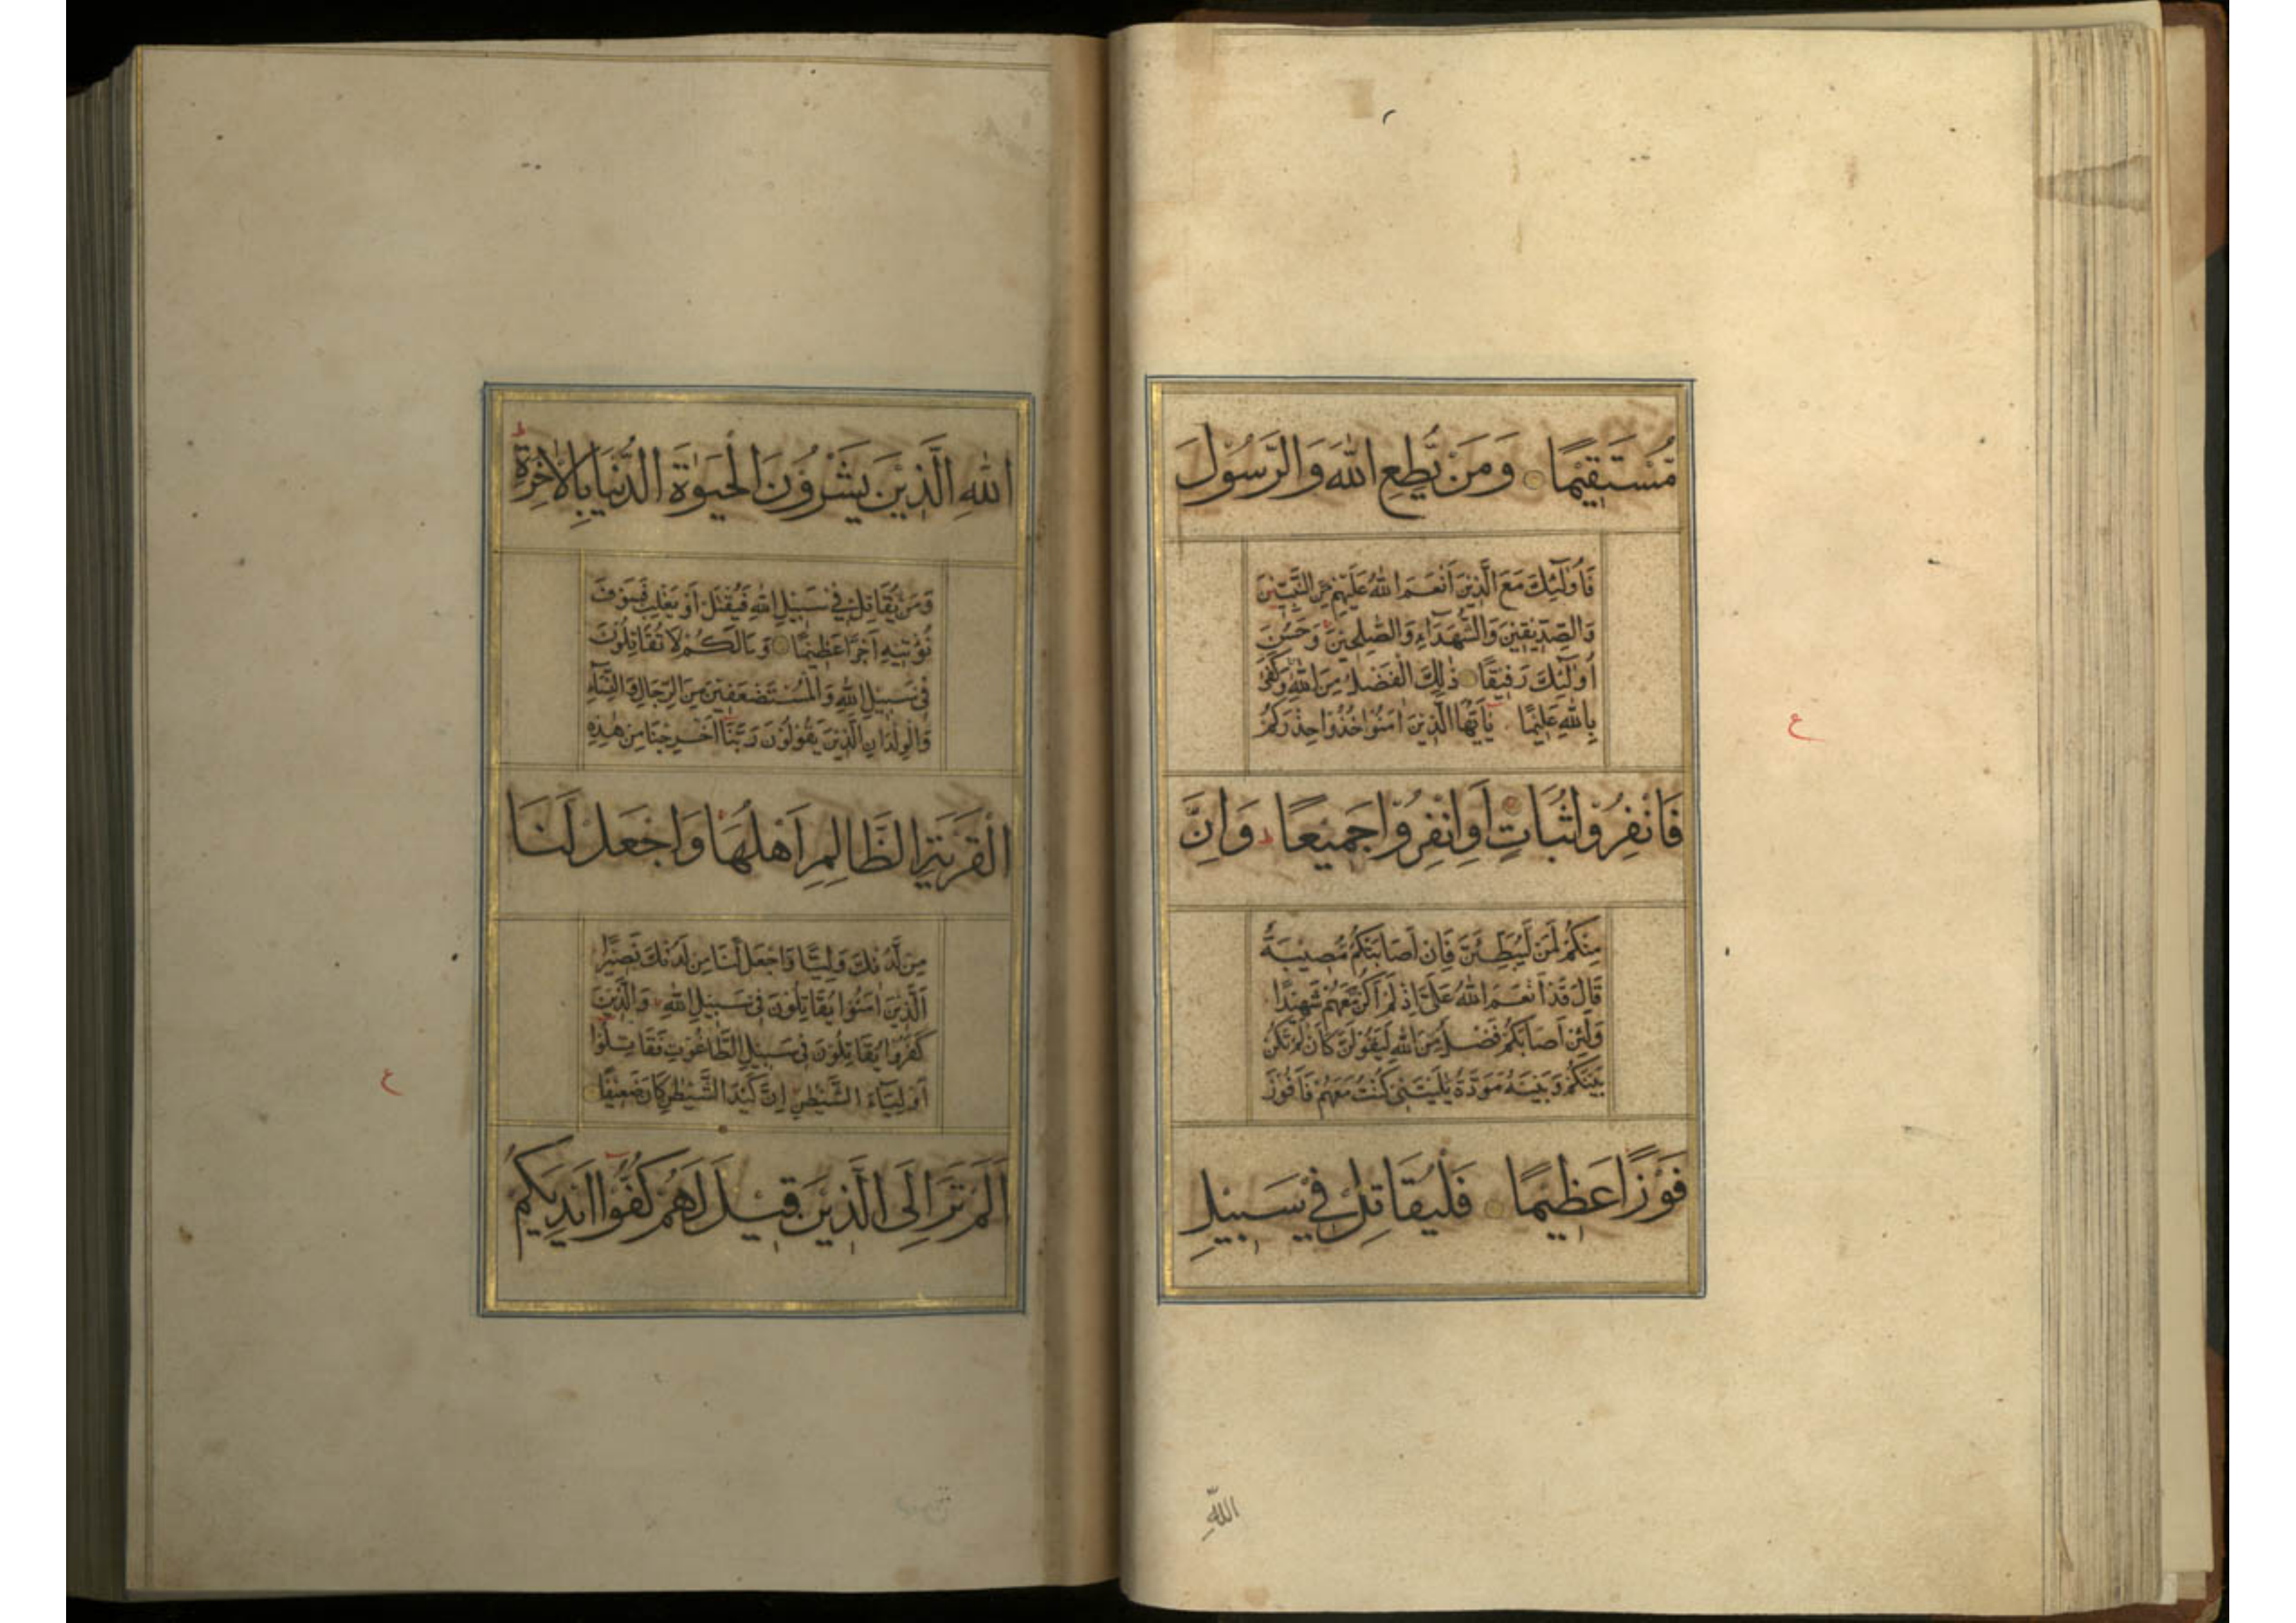 مُّسْتَقِيْمًا وَمَنْ يُّطِعِ اللّٰهَ وَالرَّسُوْلَ
فَاُولٰٓئِكَ مَعَ الَّذِيْنَ اَنْعَمَ اللّٰهُ عَلَيْهِمْ مِّنَ النَّبِيّٖنَ
وَالصِّدِّيْقِيْنَ وَالشُّهَدَآءِ وَالصّٰلِحِيْنَ وَحَسُنَ
اُولٰٓئِكَ رَفِيْقًا ذٰلِكَ الْفَضْلُ مِنَ اللّٰهِ وَكَفٰى
بِاللّٰهِ عَلِيْمًا يٰٓاَيُّهَا الَّذِيْنَ اٰمَنُوْا خُذُوْا حِذْرَكُمْ
فَانْفِرُوْا ثُبَاتٍ اَوِ انْفِرُوْا جَمِيْعًا وَاِنَّ
مِنْكُمْ لَمَنْ لَّيُبَطِّئَنَّ فَاِنْ اَصَابَتْكُمْ مُّصِيْبَةٌ
قَالَ قَدْ اَنْعَمَ اللّٰهُ عَلَيَّ اِذْ لَمْ اَكُنْ مَّعَهُمْ شَهِيْدًا
وَلَئِنْ اَصَابَكُمْ فَضْلٌ مِّنَ اللّٰهِ لَيَقُوْلَنَّ كَاَنْ لَّمْ تَكُنْ
بَيْنَكُمْ وَبَيْنَهٗ مَوَدَّةٌ يّٰلَيْتَنِيْ كُنْتُ مَعَهُمْ فَاَفُوْزَ
فَوْزًا عَظِيْمًا فَلْيُقَاتِلْ فِيْ سَبِيْلِ
اللّٰهِ
ع
اللّٰهِ الَّذِيْنَ يَشْرُوْنَ الْحَيٰوةَ الدُّنْيَا بِالْاٰخِرَةِ
وَمَنْ يُّقَاتِلْ فِيْ سَبِيْلِ اللّٰهِ فَيُقْتَلْ اَوْ يَغْلِبْ فَسَوْفَ
نُؤْتِيْهِ اَجْرًا عَظِيْمًا وَمَا لَكُمْ لَا تُقَاتِلُوْنَ
فِيْ سَبِيْلِ اللّٰهِ وَالْمُسْتَضْعَفِيْنَ مِنَ الرِّجَالِ وَالنِّسَآءِ
وَالْوِلْدَانِ الَّذِيْنَ يَقُوْلُوْنَ رَبَّنَآ اَخْرِجْنَا مِنْ هٰذِهِ
الْقَرْيَةِ الظَّالِمِ اَهْلُهَا وَاجْعَلْ لَّنَا
مِنْ لَّدُنْكَ وَلِيًّا وَاجْعَلْ لَّنَا مِنْ لَّدُنْكَ نَصِيْرًا
اَلَّذِيْنَ اٰمَنُوْا يُقَاتِلُوْنَ فِيْ سَبِيْلِ اللّٰهِ وَالَّذِيْنَ
كَفَرُوْا يُقَاتِلُوْنَ فِيْ سَبِيْلِ الطَّاغُوْتِ فَقَاتِلُوْٓا
اَوْلِيَآءَ الشَّيْطٰنِ اِنَّ كَيْدَ الشَّيْطٰنِ كَانَ ضَعِيْفًا
اَلَمْ تَرَ اِلَى الَّذِيْنَ قِيْلَ لَهُمْ كُفُّوْٓا اَيْدِيَكُمْ
ع